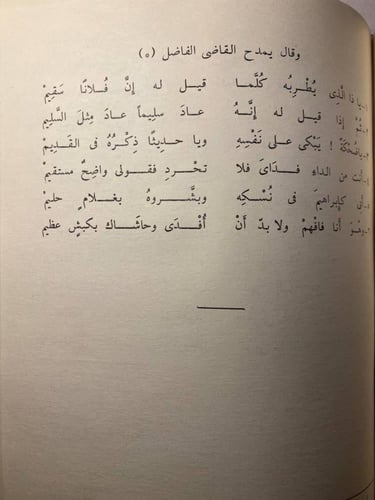 وقال يمدح القاضى الفاضل (٥)
يا ذا الَّذِى يُطْرِبُه كُلَّما قيل له إنَّ فُلانًا سَقِيمْ
ثُمَّ إذا قيل له إنَّهُ عادَ سليماً عادَ مِثلَ السَّلِيمْ
يا ضُحْكَةً ! يَبْكى على نَفْسِهِ ويا حديثًا ذِكْرُهُ فى القَدِيمْ
أنت من الداءِ فداىَ فلا تحْرَدِ فقولى واضِحٌ مستقيمْ
أنى كإبراهيمَ فى نُسْكِهِ وبشَّروهُ بغلامٍ حليمْ
وهْوَ أنا فافْهمْ ولا بدّ أنْ أُفْدَى وحاشاك بكبشٍ عظيم